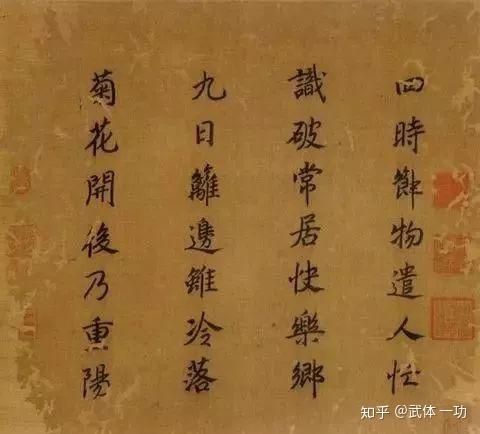 四時節物遣人忙
識破常居快樂鄉
九日籬邊雖冷落
菊花開後乃重陽
知乎 @武体一功